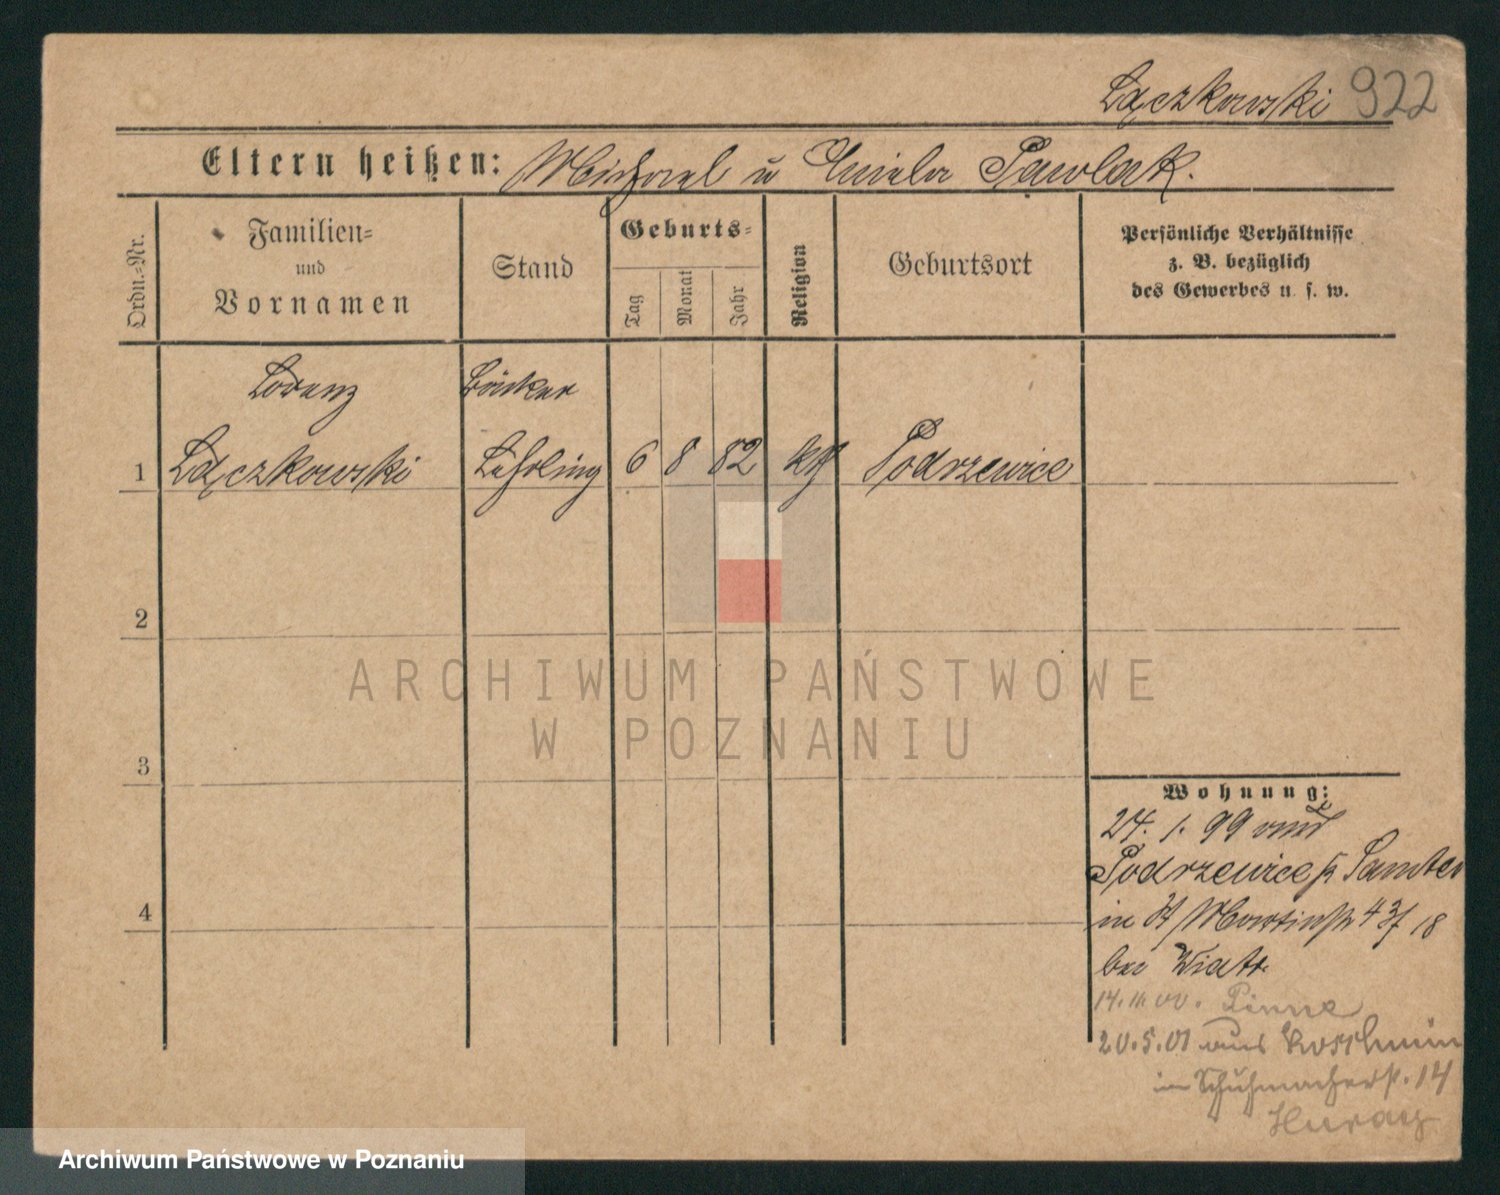 Łączkowski 922
Eltern heißen: Michael u Aniela Pawlak.
Ordn.-Nr.
Familien-
und
Vornamen
Stand
Geburts-
Tag
Monat
Jahr
Religion
Geburtsort
Persönliche Verhältnisse
z. B. bezüglich
des Gewerbes u. s. w.
Lorenz
Bäcker
1 Łączkowski Lehrling 6 8 82 kth Podrzewice
2
3
4
ARCHIWUM PAŃSTWOWE
W POZNANIU
Wohnung:
24. 1. 99 aus
Podrzewice Samter
in St Martinstr 43 18
bei Wiatr.
14.11.00. Pinne
20.5.01 aus Koschmin
in Schuhmacherst. 14
Archiwum Państwowe w Poznaniu